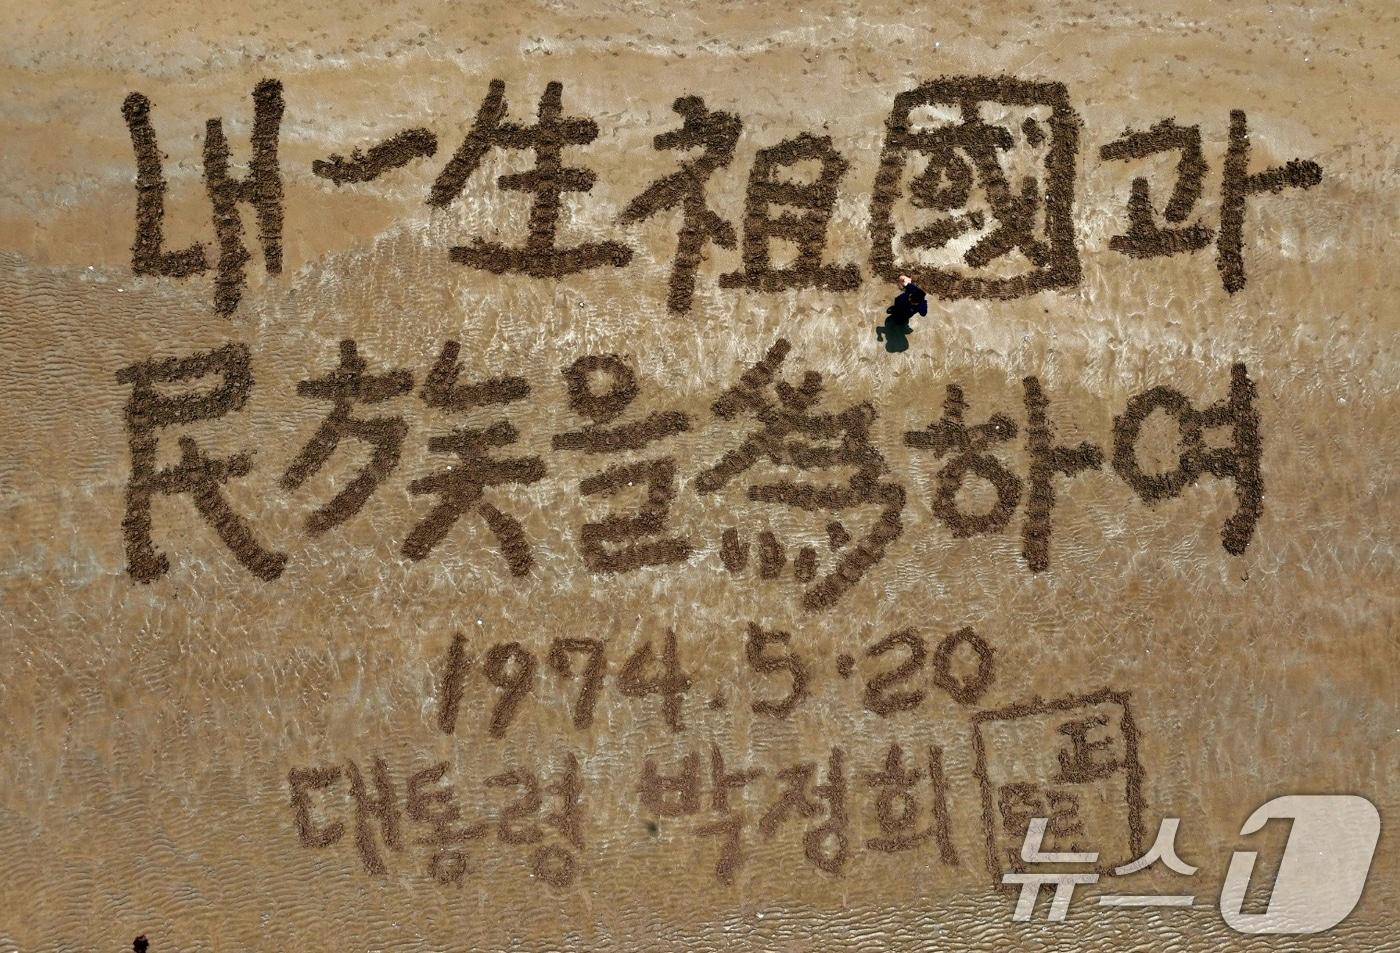 내 一生 祖國과
民族을 爲하여
1974.5.20
대통령 박정희
正熙
뉴스1